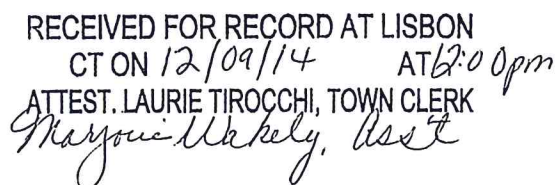 RECEIVED FOR RECORD AT LISBON
CT ON 12/09/14 AT 12:00pm
ATTEST. LAURIE TIROCCHI, TOWN CLERK
Marjorie Wakely, Ass't